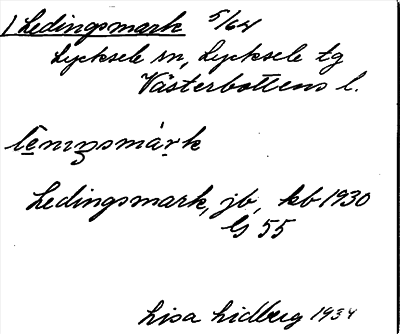 1 Ledingsmark 5/64
Lycksele sn, Lycksele tg
Västerbottens l.
Ledingsmark, jb, kb 1930
G 55
Lisa Lidberg 1934